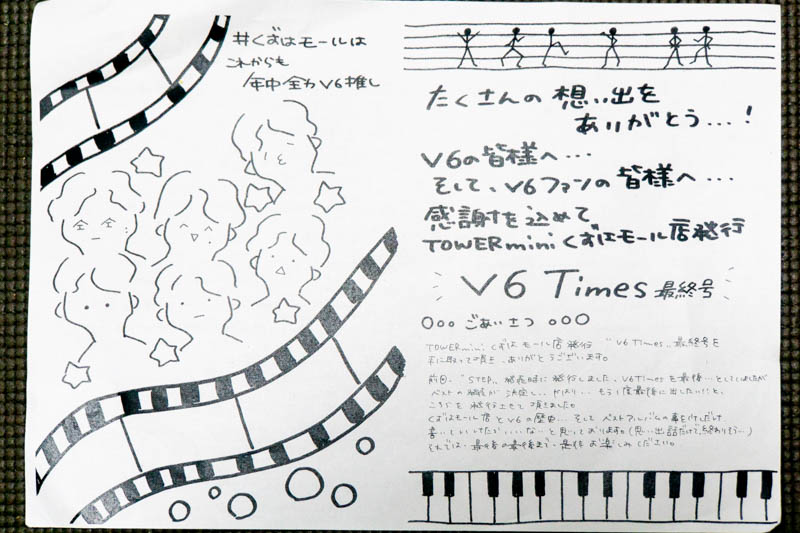 #くずはモールは
これからも
年中全力V6推し
たくさんの想い出を
ありがとう…!
V6の皆様へ…
そして、V6ファンの皆様へ…
感謝を込めて
TOWERminiくずはモール店発行
V6 Times 最終号
○○○ ごあいさつ ○○○
TOWERmini くずはモール店発行 "V6 Times" 最終号を
手に取って頂き、ありがとうございます。
前回、"STEP" 発売時に発行しました、V6Timesを最後…としてしましたが
ベストの発売が決定し、やはり…もう1度最後に出したい!と、
こちらを発行させて頂きました。
くずはモール店とV6の歴史…そしてベストアルバムの事を
書いていけたらいいな…と思っております。(思い出話だけで終わりそう…)
それでは、最後の最後まで、是非お楽しみください。